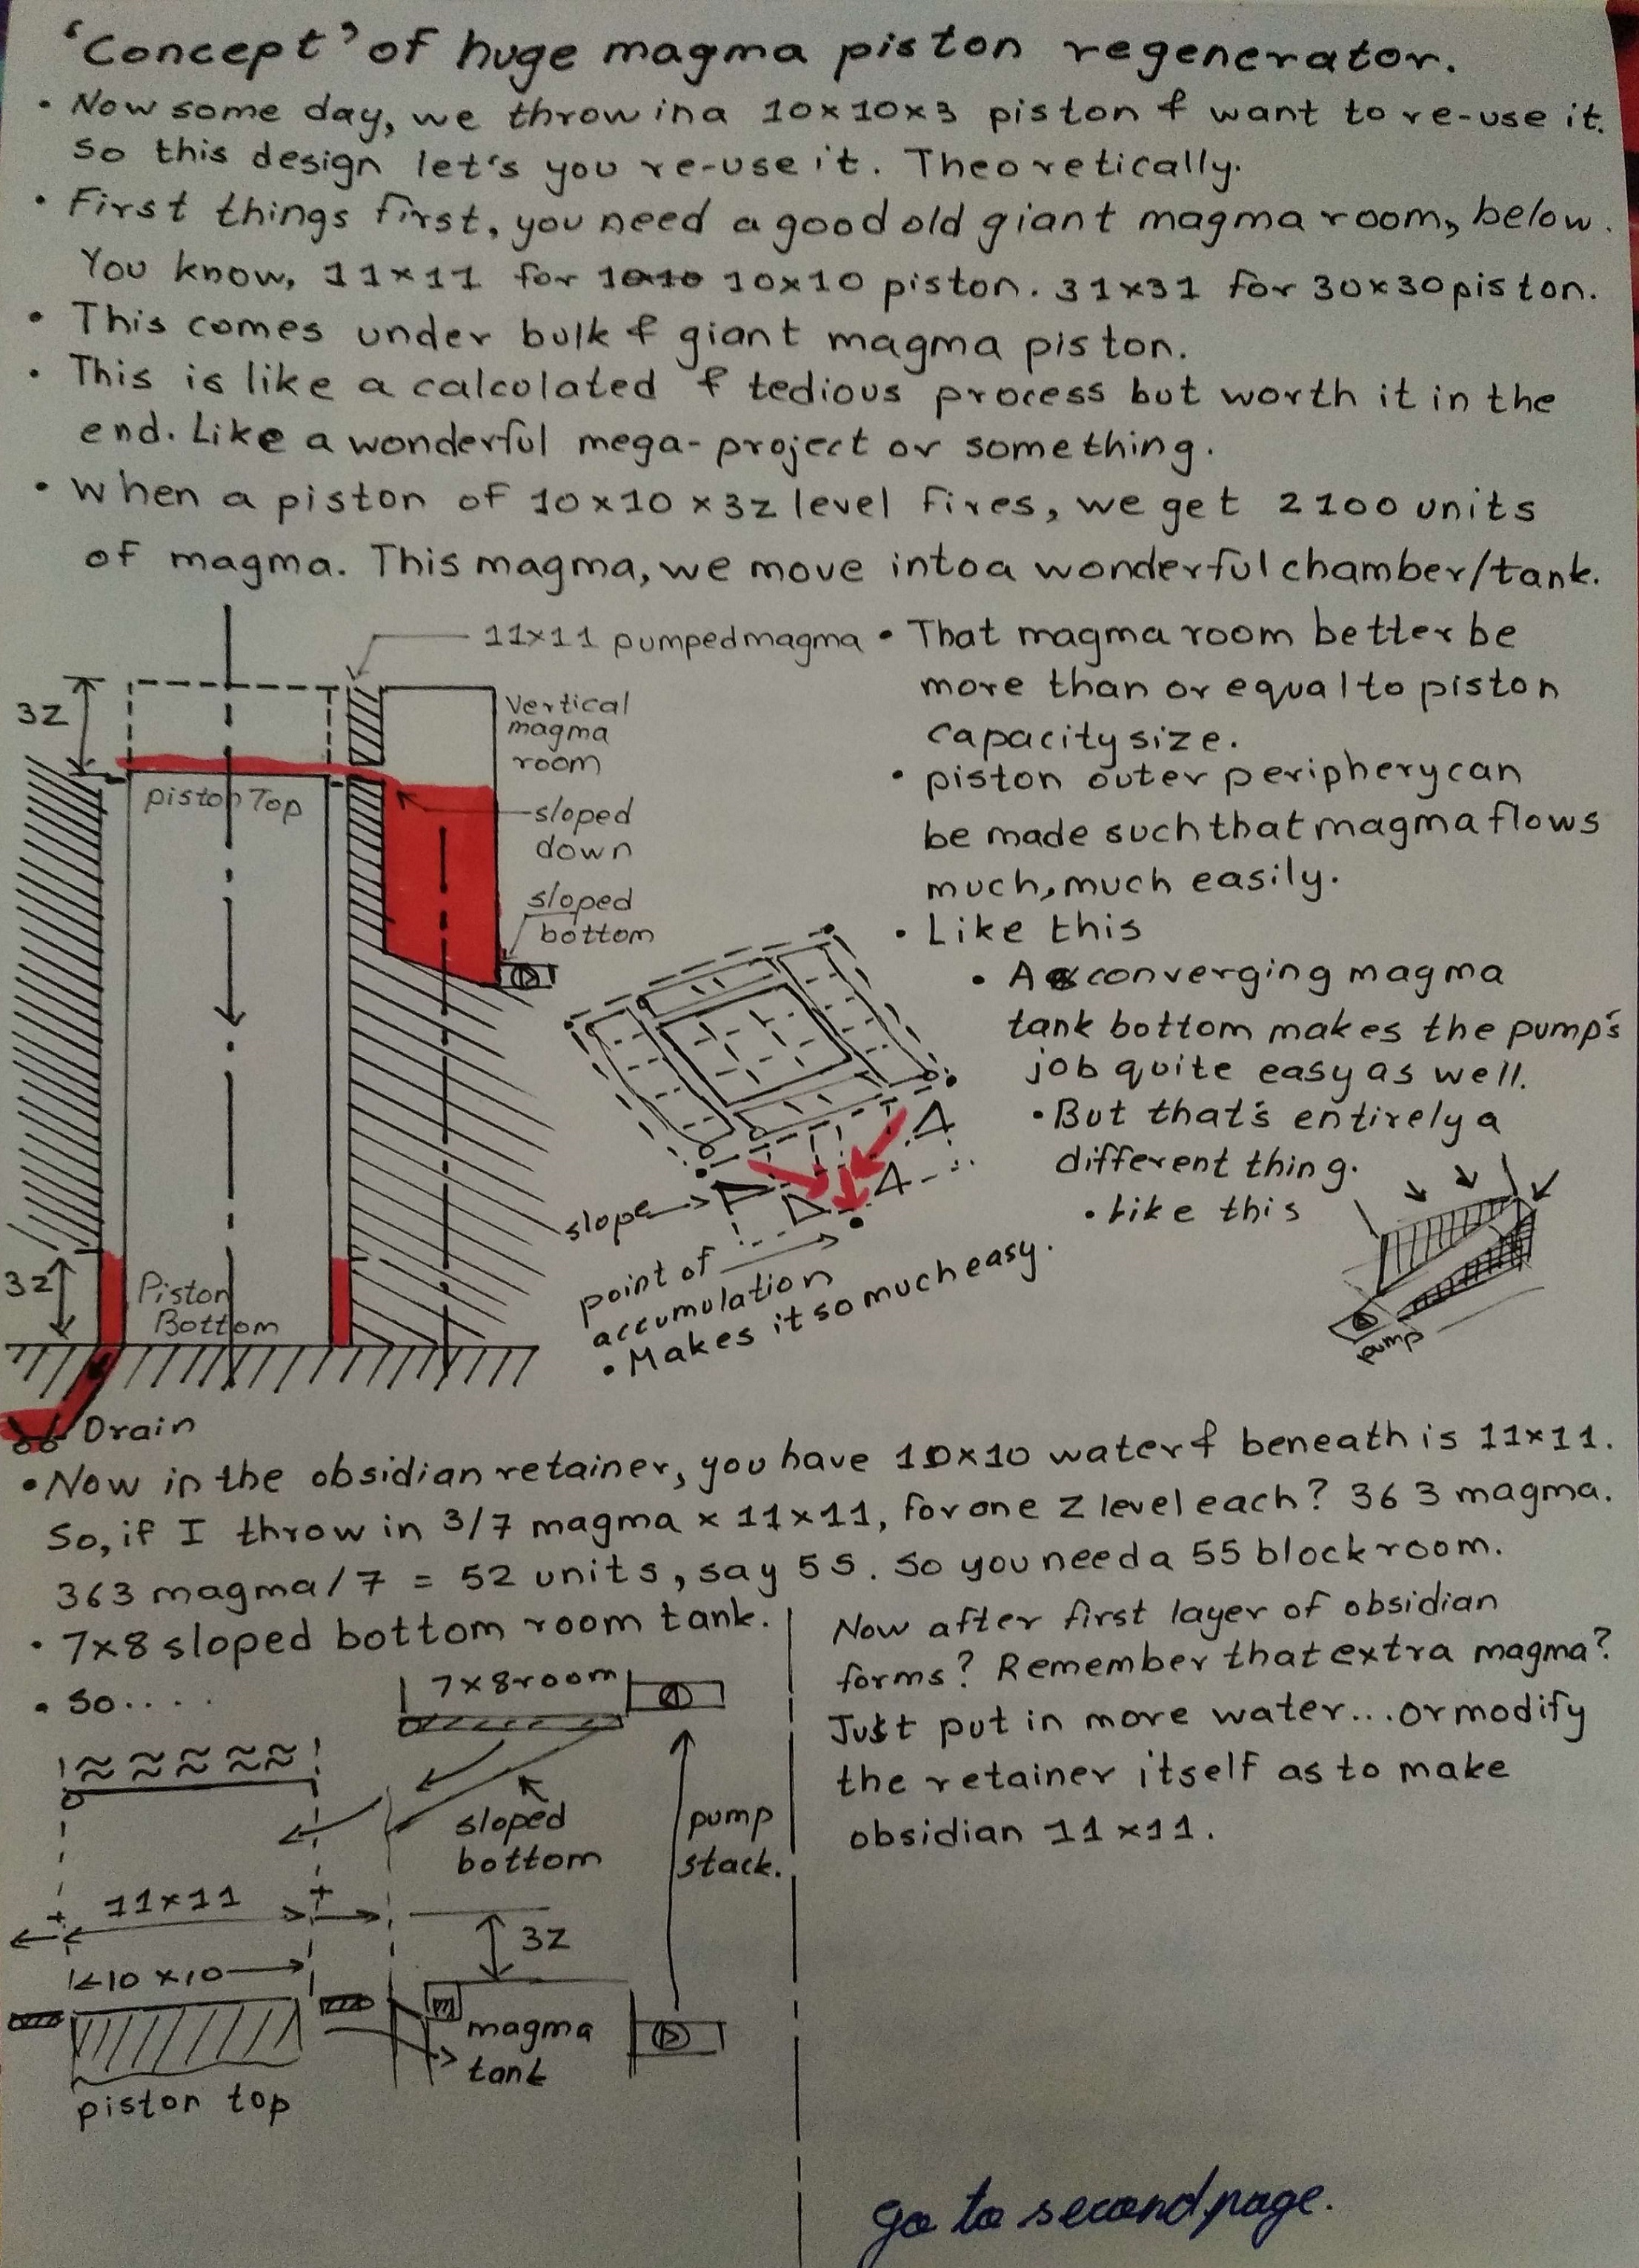 ‘Concept’ of huge magma piston regenerator.
• Now some day, we throw in a 10x10x3 piston & want to re-use it.
So this design let's you re-use it. Theoretically.
• First things first, you need a good old giant magma room, below.
You know, 11x11 for 1010 10x10 piston. 31x31 for 30x30 piston.
• This comes under bulk & giant magma piston.
• This is like a calculated & tedious process but worth it in the
end. Like a wonderful mega-project or something.
• When a piston of 10x10 x 3z level fires, we get 2100 units
of magma. This magma, we move into a wonderful chamber/tank.
11x11 pumped magma
3z
Vertical
magma
room
piston Top
sloped
down
sloped
bottom
• That magma room better be
more than or equal to piston
capacity size.
• piston outer periphery can
be made such that magma flows
much, much easily.
• Like this
• A converging magma
tank bottom makes the pump's
job quite easy as well.
• But that's entirely a
different thing.
• Like this
pump
slope
point of
accumulation
• Makes it so much easy.
3z
Piston
Bottom
Drain
• Now in the obsidian retainer, you have 10x10 water & beneath is 11x11.
So, if I throw in 3/7 magma x 11x11, for one z level each? 363 magma.
363 magma/7 = 52 units, say 55. So you need a 55 block room.
• 7x8 sloped bottom room tank.
• So....
7x8 room
sloped
bottom
pump
stack.
11x11
3z
10x10
magma
tank
piston top
Now after first layer of obsidian
forms? Remember that extra magma?
Just put in more water... or modify
the retainer itself as to make
obsidian 11x11.
go to second page.